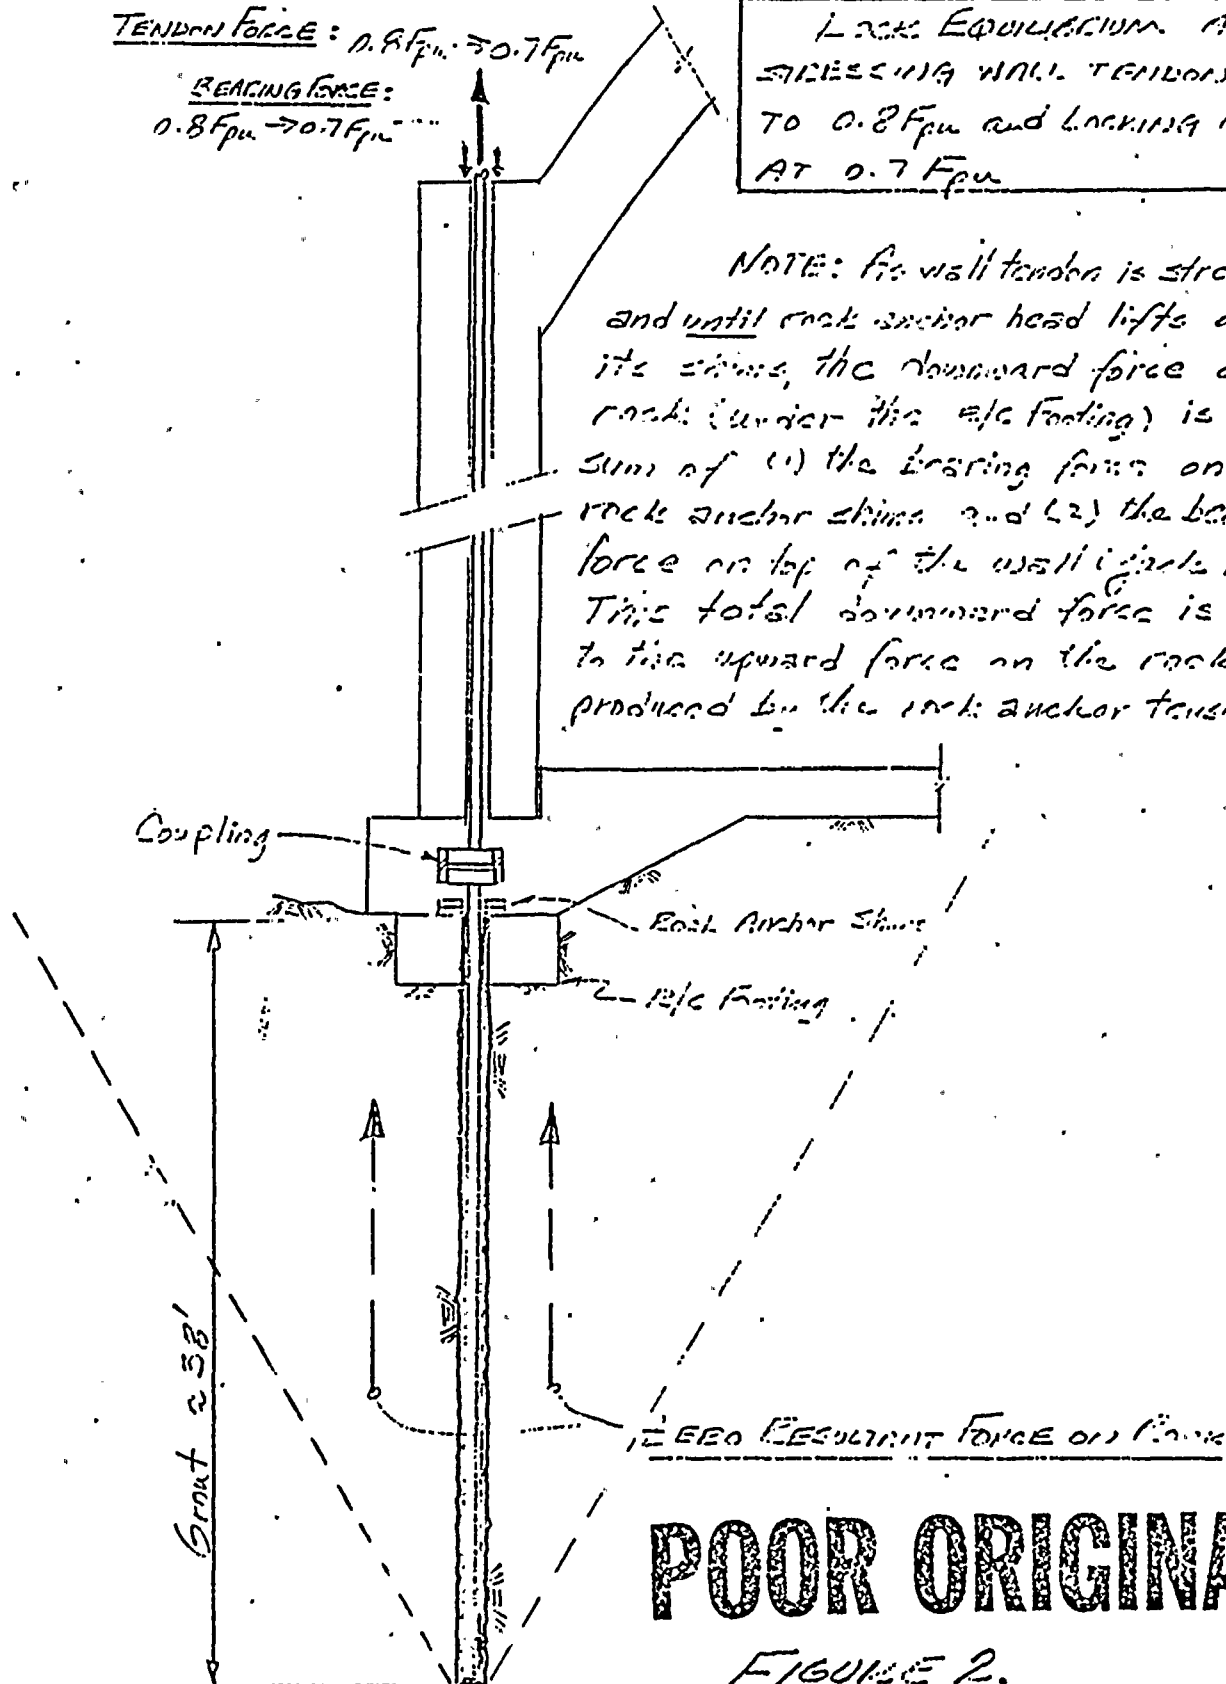 TENDON FORCE: 0.8Fpu → 0.7Fpu
BEARING FORCE:
0.8Fpu → 0.7Fpu
EQUILIBRIUM
STRESSING WALL TENDONS
TO 0.8Fpu and LOCKING
AT 0.7 Fpu
NOTE: As wall tendon is
and until rock anchor head lifts
its shims, the downward force
rock (under the R/C Footing) is
sum of (1) the bearing force on
rock anchor shims and (2) the
force on top of the wall
This total downward force is
to the upward force on the rock
produced by the rock anchor
Coupling
Rock Anchor Shims
R/C Footing
Grout ≈ 38'
ZERO RESULTANT FORCE ON ROCK
POOR ORIGINA
FIGURE 2.